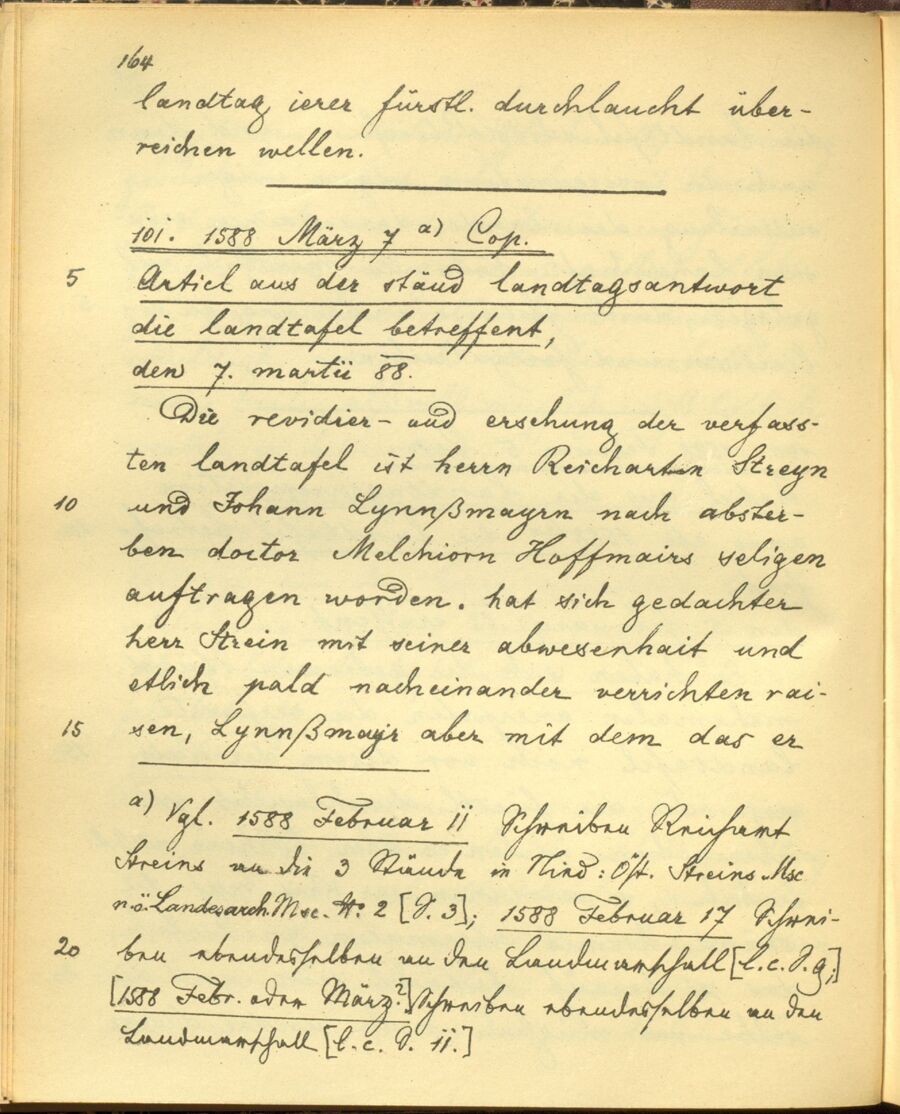 164
landtag ierer fürstl. durchlaucht über-
reichen wellen.
101. 1588 März 7 a) Cop.
5 Articl aus der ständ landtagsantwort
die landtafel betreffent,
den 7. martii 88.
Die revidier- und ersehung der verfass-
ten landtafel ist herrn Reicharten Streyn
10 und Johann Lynnßmayrn nach abster-
ben doctor Melchiorn Hoffmairs seligen
auftragen worden. hat sich gedachter
herr Strein mit seiner abwesenhait und
etlich pald nacheinander verrichten rai-
15 sen, Lynnßmayr aber mit dem das er
a) Vgl. 1588 Februar 11 Schreiben Reichart
Streins an die 3 Stände in Nied: Öst. Streins Msc
n.ö. Landesarch. Msc. No 2 [S. 3]; 1588 Februar 17 Schrei-
20 ben ebendesselben an den Landmarschall [l. c. S. 9;]
[1588 Febr. oder März?] Schreiben ebendesselben an den
Landmarschall [l. c. S. 11.]